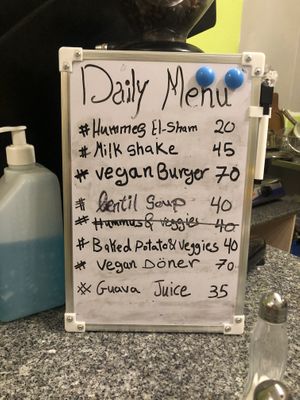 Daily Menu
# Hummes El-Sham 20
# Milk shake 45
# vegan Burger 70
# Lentil Soup 40
# Hummus & veggies 40
# Baked Potato & Veggies 40
# Vegan Döner 70
# Guava Juice 35